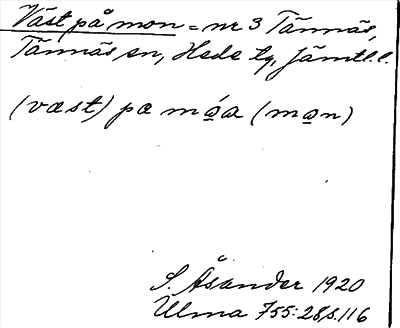 Väst på mon = nr 3 Tännäs,
Tännäs sn, Hede tg, Jämtl. l.
(væst) pæ mó̲a (mo̲n)
S. Åsander 1920
Ulma 755:28, s. 116